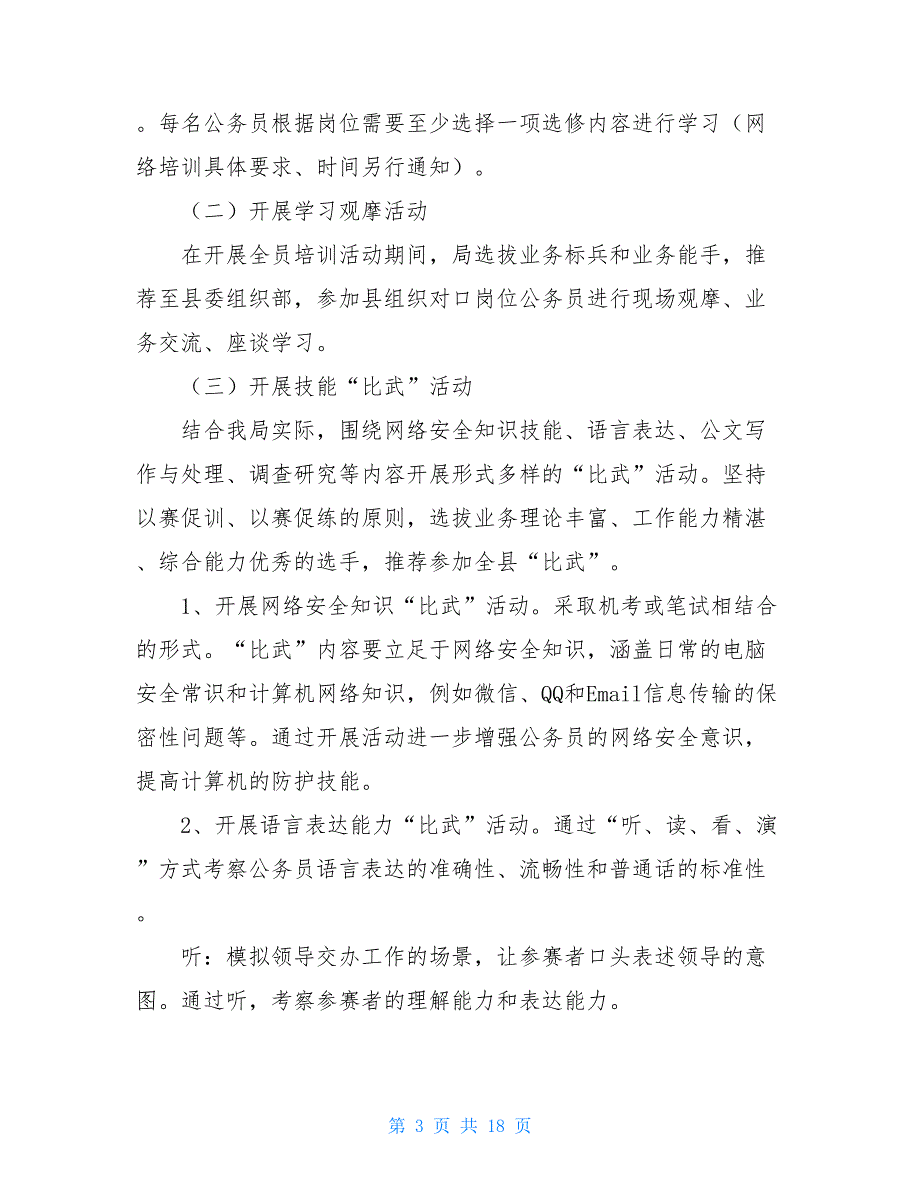 。每名公务员根据岗位需要至少选择一项选修内容进行学习（网
络培训具体要求、时间另行通知）。
（二）开展学习观摩活动
在开展全员培训活动期间，局选拔业务标兵和业务能手，推
荐至县委组织部，参加县组织对口岗位公务员进行现场观摩、业
务交流、座谈学习。
（三）开展技能“比武”活动
结合我局实际，围绕网络安全知识技能、语言表达、公文写
作与处理、调查研究等内容开展形式多样的“比武”活动。坚持
以赛促训、以赛促练的原则，选拔业务理论丰富、工作能力精湛
、综合能力优秀的选手，推荐参加全县“比武”。
1、开展网络安全知识“比武”活动。采取机考或笔试相结合
的形式。“比武”内容要立足于网络安全知识，涵盖日常的电脑
安全常识和计算机网络知识，例如微信、QQ和Email信息传输的保
密性问题等。通过开展活动进一步增强公务员的网络安全意识，
提高计算机的防护技能。
2、开展语言表达能力“比武”活动。通过“听、读、看、演
”方式考察公务员语言表达的准确性、流畅性和普通话的标准性
。
听：模拟领导交办工作的场景，让参赛者口头表述领导的意
图。通过听，考察参赛者的理解能力和表达能力。
第 3 页 共 18 页